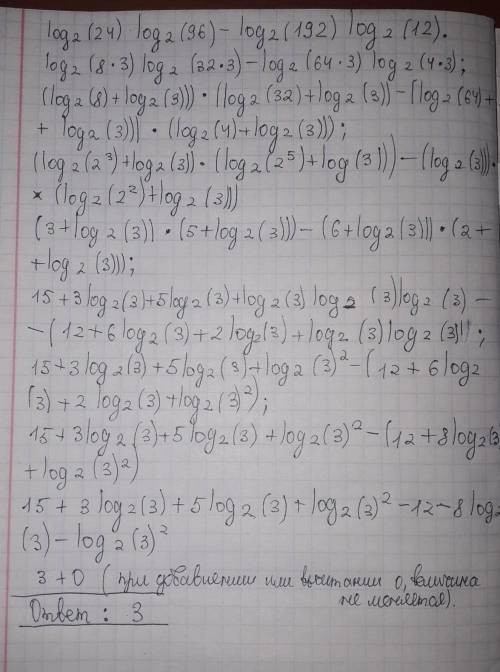 log₂(24) log₂(96) - log₂(192) log₂(12).
log₂(8·3) log₂(32·3) - log₂(64·3) log₂(4·3);
(log₂(8)+log₂(3)))·(log₂(32)+log₂(3)) - (log₂(64)+
+ log₂(3)))·(log₂(4)+log₂(3)));
(log₂(2³)+log₂(3))·(log₂(2⁵)+log(3))) - (log₂(3)))·
× (log₂(2²)+log₂(3)))
(3+log₂(3))·(5+log₂(3))) - (6+log₂(3)))·(2+
+log₂(3)));
15+3log₂(3)+5log₂(3)+log₂(3) log₂ (3)log₂(3) -
- (12+6log₂(3)+2log₂(3)+log₂(3)log₂(3));
15+3log₂(3)+5log₂(3)+log₂(3)² - (12+6log₂
(3)+2log₂(3)+log₂(3)²);
15+3log₂(3)+5log₂(3)+log₂(3)² - (12+8log₂(3)
+log₂(3)²)
15+3log₂(3)+5log₂(3)+log₂(3)² - 12 - 8log₂
(3) - log₂(3)²
3+0 (при добавлении или вычитании 0, величина
не меняется).
Ответ: 3